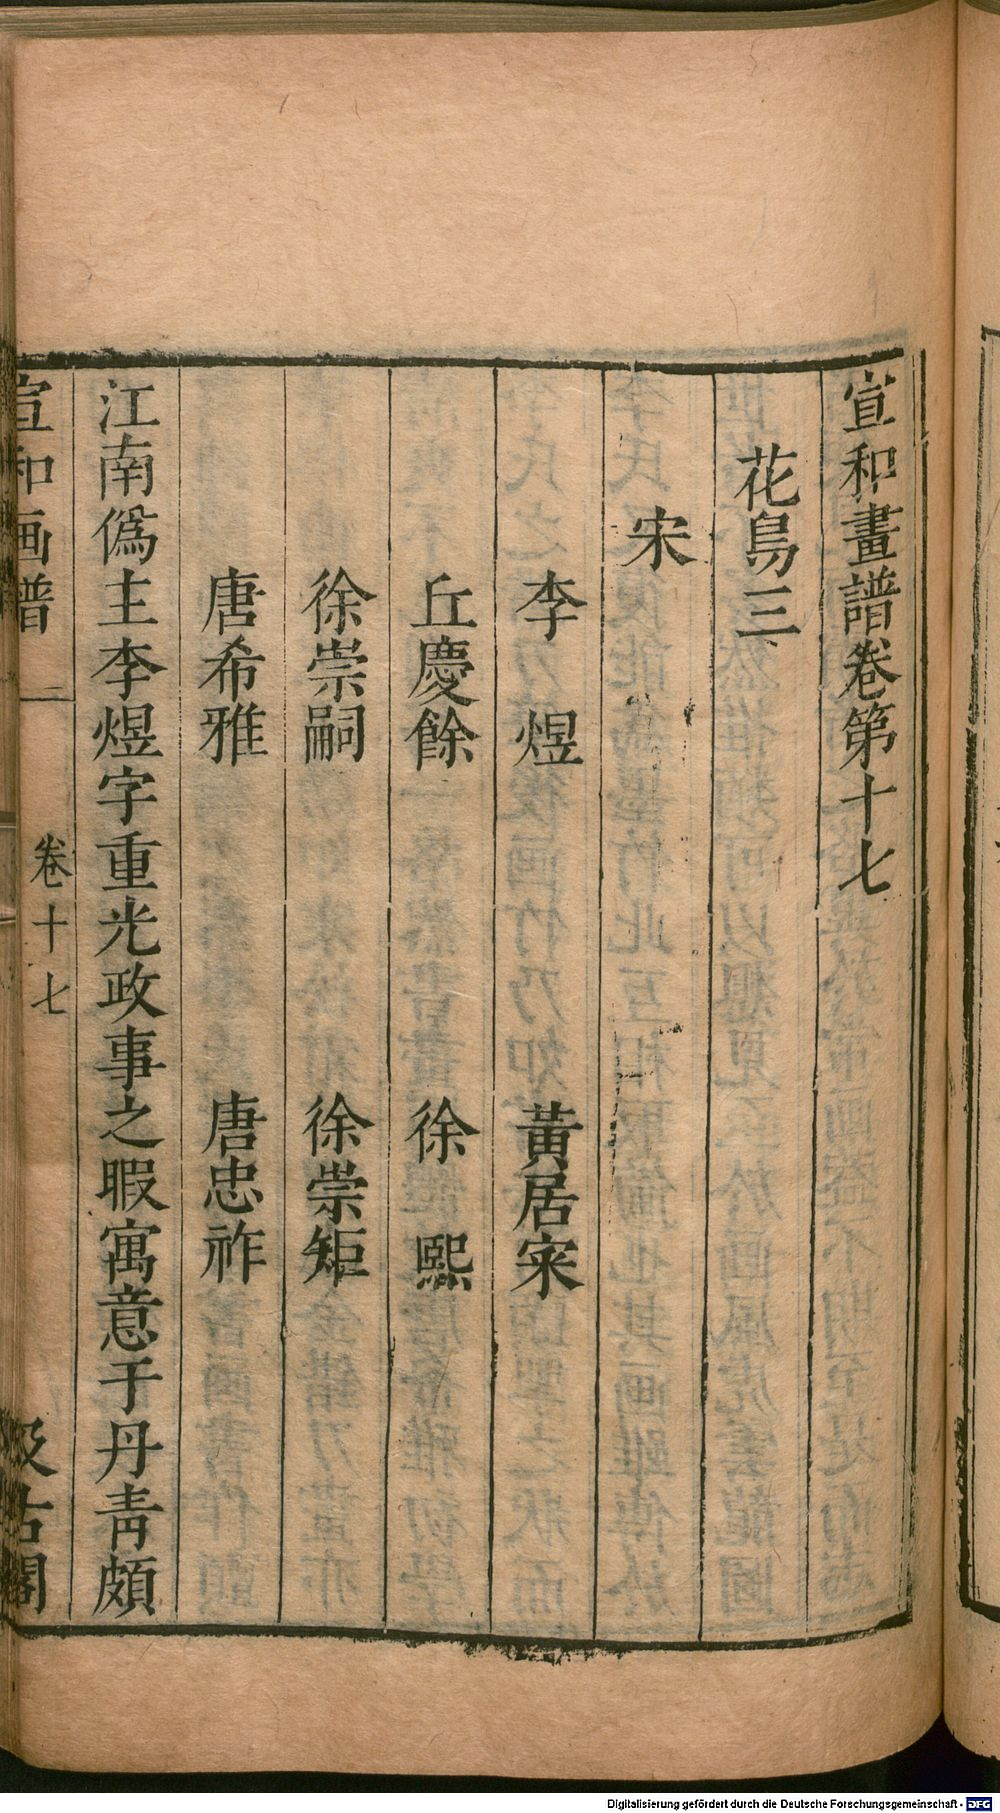 宣和畫譜卷第十七
花鳥三
宋
李煜 黃居寀
丘慶餘 徐熙
徐崇嗣 徐崇矩
唐希雅 唐忠祚
江南僞主李煜字重光政事之暇寓意于丹青頗
宣和画譜 卷十七 汲古閣
Digitalisierung gefördert durch die Deutsche Forschungsgemeinschaft - DFG